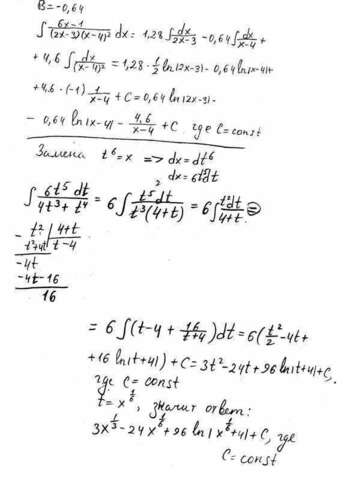 B=-0,64
∫ (6x-1)/((2x-3)(x-4)²) dx = 1,28 ∫ dx/(2x-3) - 0,64 ∫ dx/(x-4) +
+ 4,6 ∫ dx/(x-4)² = 1,28 · 1/2 ln|2x-3| - 0,64 ln|x-4| +
+ 4,6 · (-1) 1/(x-4) + C = 0,64 ln|2x-3| -
- 0,64 ln|x-4| - 4,6/(x-4) + C, где C = const
Замена t⁶ = x => dx = dt⁶
dx = 6t⁵dt
∫ 6t⁵ dt/(4t³ + t⁴) = 6 ∫ t⁵ dt/(t³(4+t)) = 6 ∫ t² dt/(4+t) =
- t² | 4+t
t²+4t | t-4
-4t
-4t-16
16
= 6 ∫ (t-4 + 16/(t+4)) dt = 6 (t²/2 - 4t +
+ 16 ln|t+4|) + C = 3t² - 24t + 96 ln|t+4| + C,
где C = const
t = x^(1/6), значит ответ:
3x^(1/3) - 24x^(1/6) + 96 ln|x^(1/6) + 4| + C, где
C = const